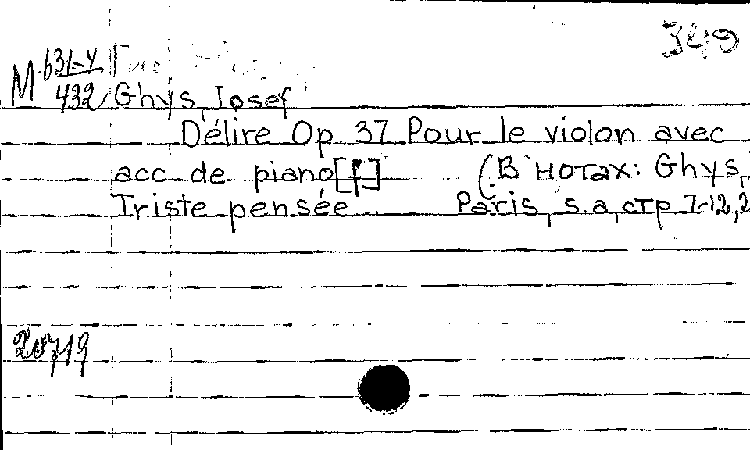 349
M 631-4/432
Ghys, Josef
Délire Op 37 Pour le violon avec
acc de piano [f] (В нотах: Ghys,
Triste pensée Paris, s.a, стр 7-12, 2
20719